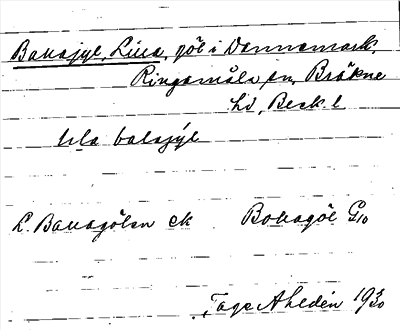 Bollagyl, Lilla, göl i Dannemark,
Ringamåla sn, Bräkne
hd, Blek. l
lɩla balagýl
L. Bollagölen ek Bollagöl G10
Tage Ahldén 19 5/8 30